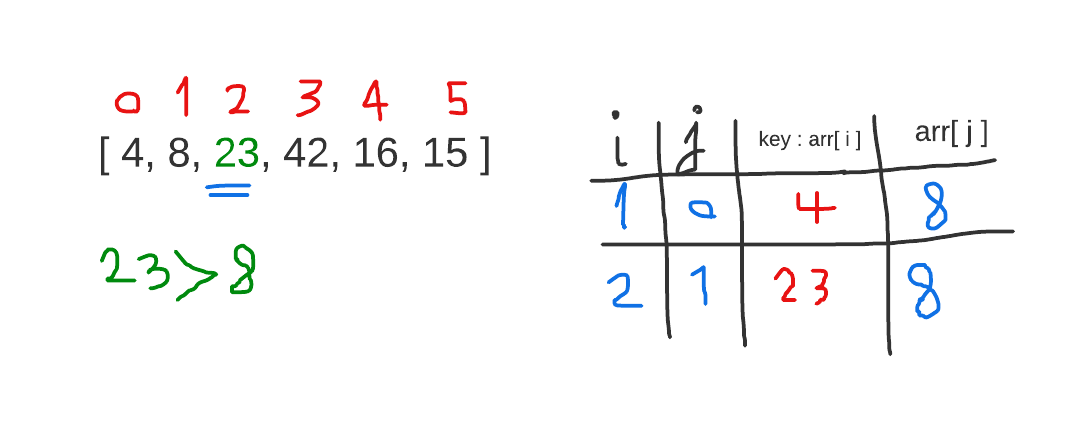 0 1 2 3 4 5
[ 4, 8, 23, 42, 16, 15 ]
23>8
i j key : arr[ i ] arr[ j ]
1 0 4 8
2 1 23 8